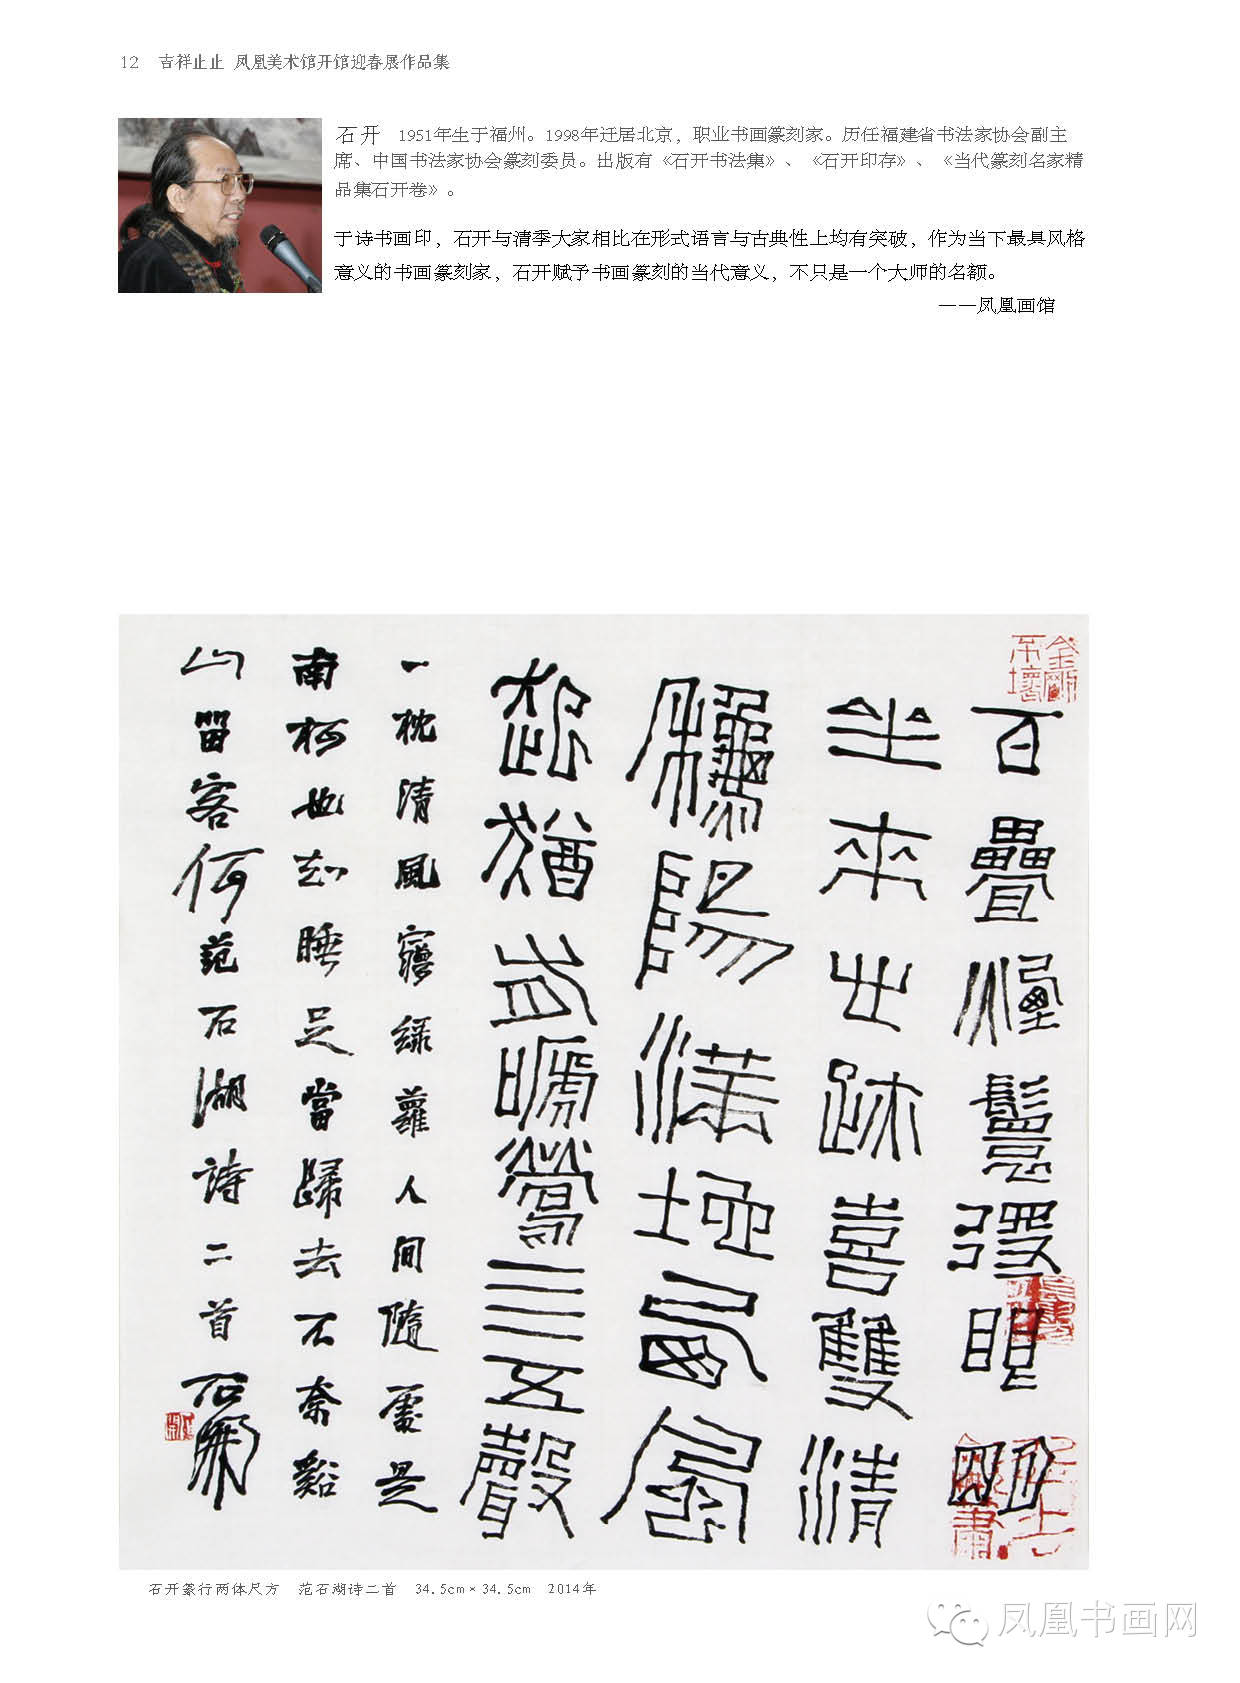 12 吉祥止止 凤凰美术馆开馆迎春展作品集
石开 1951年生于福州。1998年迁居北京，职业书画篆刻家。历任福建省书法家协会副主
席、中国书法家协会篆刻委员。出版有《石开书法集》、《石开印存》、《当代篆刻名家精
品集石开卷》。
于诗书画印，石开与清季大家相比在形式语言与古典性上均有突破，作为当下最具风格
意义的书画篆刻家，石开赋予书画篆刻的当代意义，不只是一个大师的名额。
——凤凰画馆
金剛不壞
百疊鬟眼明
坐來跡喜雙清
陽滿地
起猶鶯三五聲
一枕清風夢綠蘿人間隨處是
南柯也知睡足當歸去不奈谿
山留客何范石湖詩二首石開
石开篆行两体尺方 范石湖诗二首 34.5cm×34.5cm 2014年
凤凰书画网